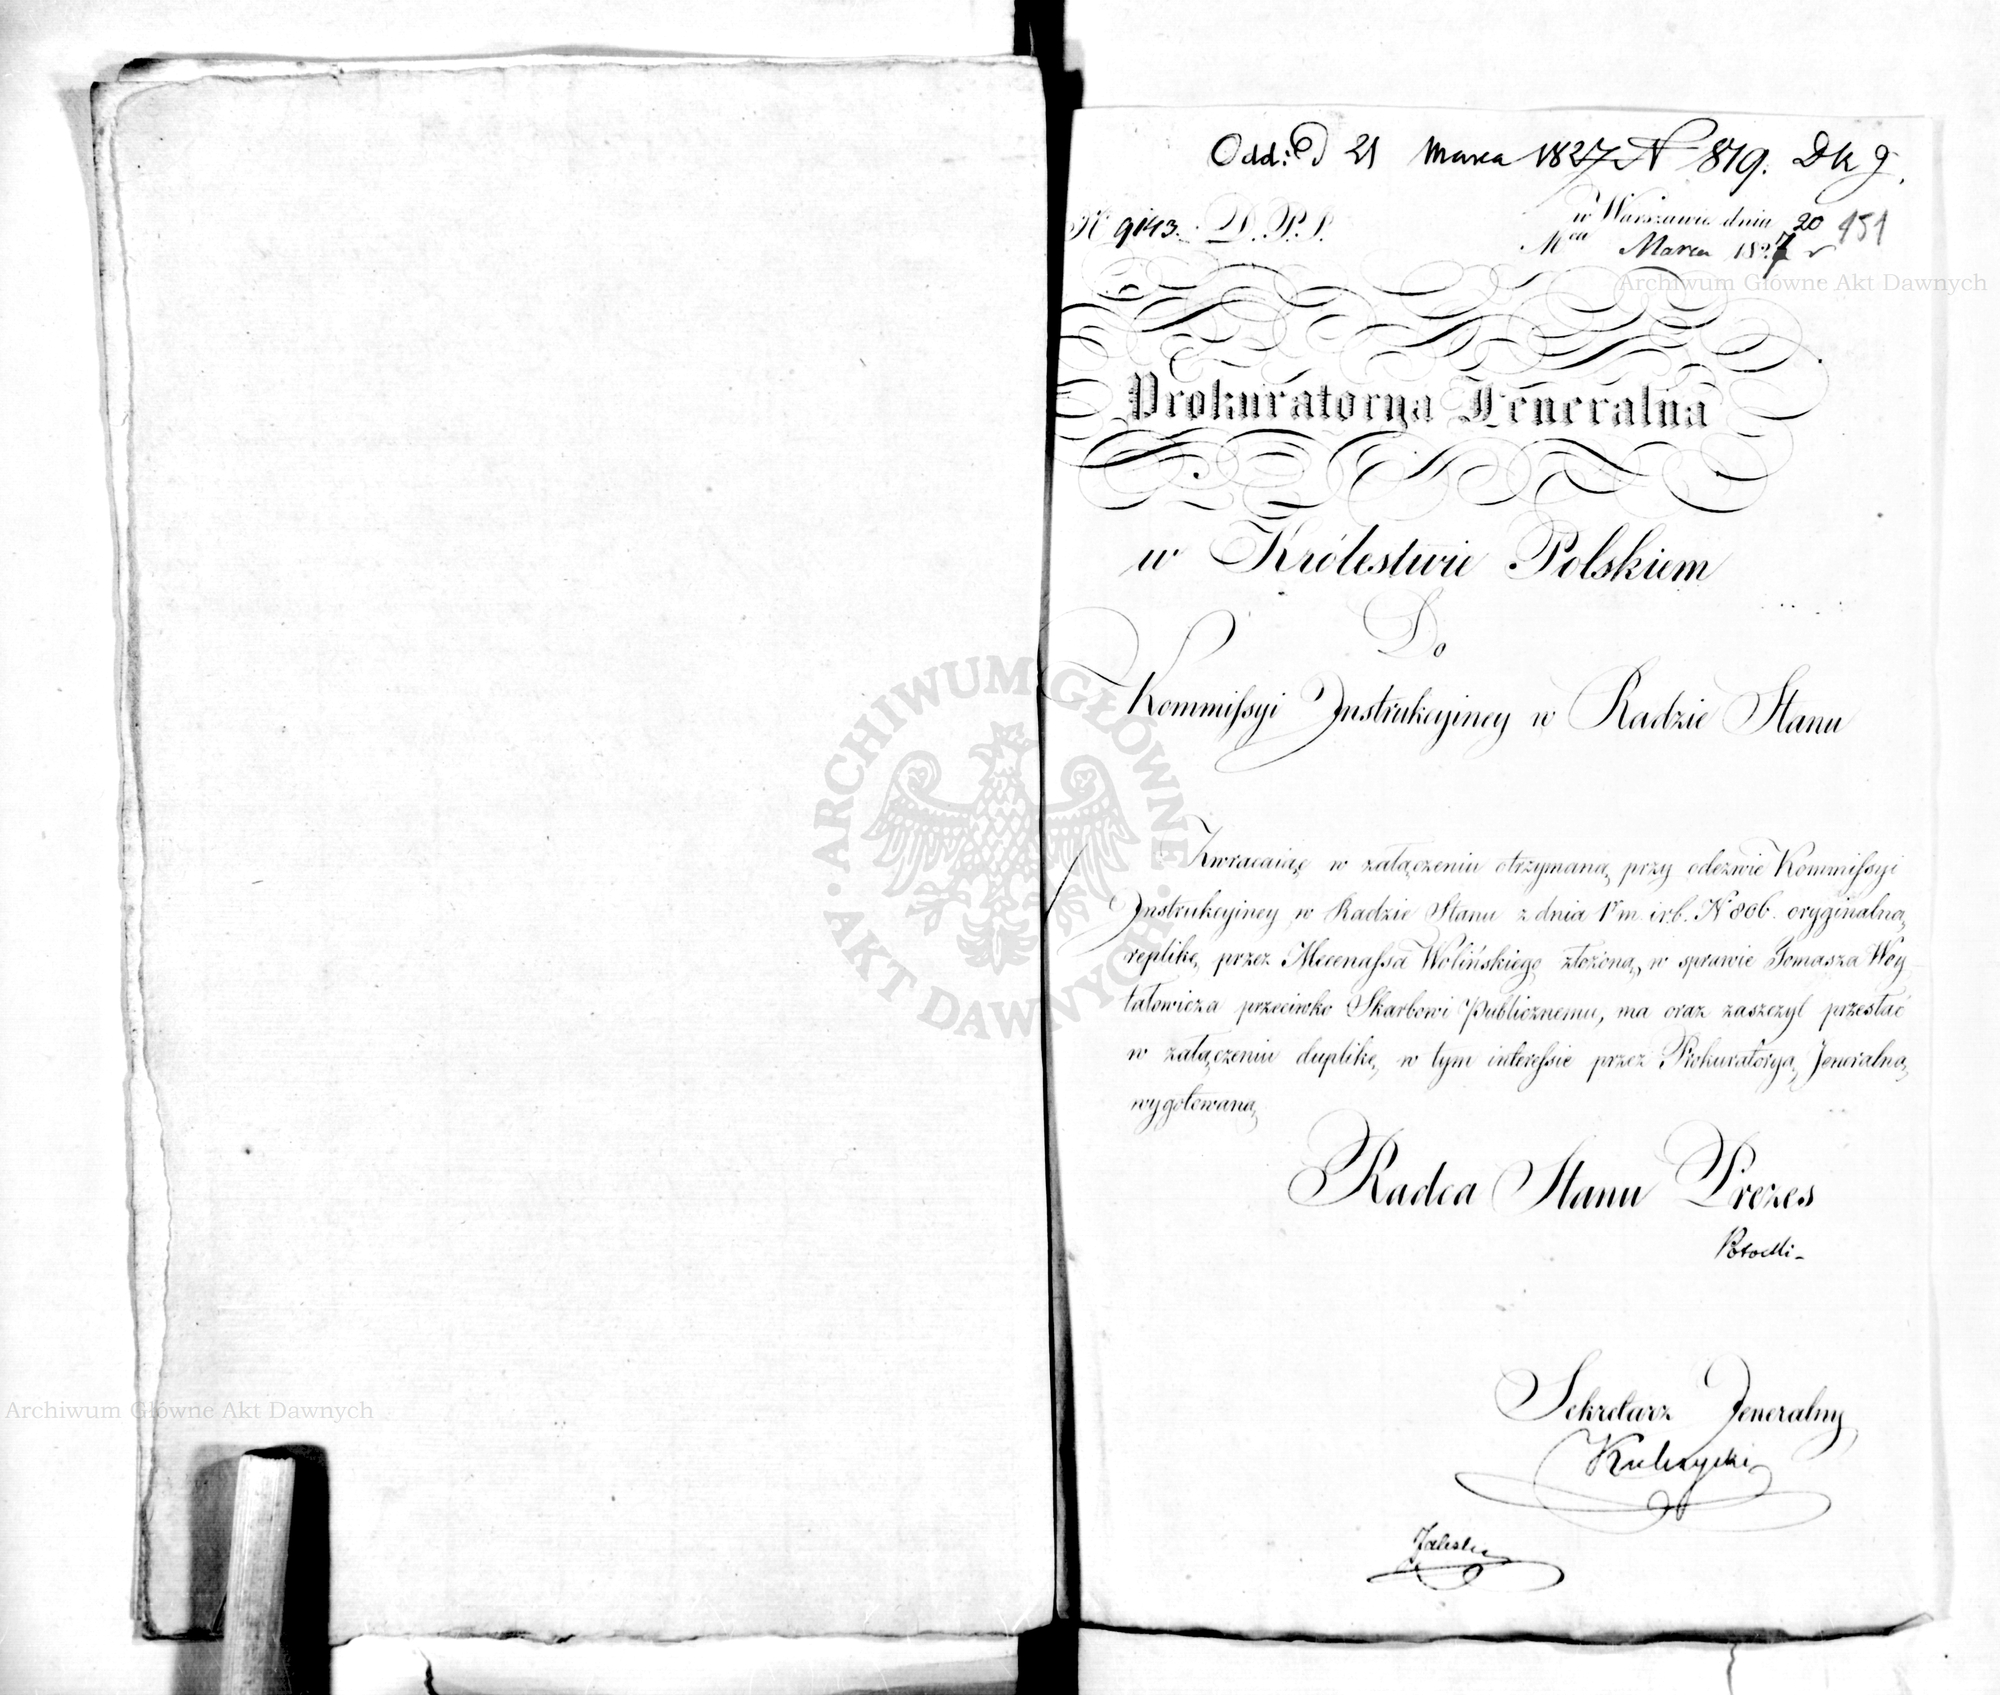 Odd: D 21 Marca 1827 N 879. D k g.
N 9143. D. P. S.
w Warszawie dnia 20
Mca Marca 1827 r
151
Prokuratorya Jeneralna
w Królestwie Polskiem
Do
Kommissyi Instrukcyiney w Radzie Stanu
Zwracaiąc w załączeniu otrzymaną przy odezwie Kommissyi
Instrukcyiney w Radzie Stanu z dnia 1 m. i r. b. N 806. oryginalną
replikę przez Mecenassa Wolińskiego złożoną, w sprawie Tomasza Woy
tatowicza przeciwko Skarbowi Publicznemu, ma oraz zaszczyt przesłać
w załączeniu duplikę, w tym interessie przez Prokuratoryą Jeneralną
wygotowaną
Radca Stanu Prezes
Potocki
Sekretarz Jeneralny
Kulczycki
Zaleski
Archiwum Główne Akt Dawnych
ARCHIWUM GŁÓWNE AKT DAWNYCH
Archiwum Główne Akt Dawnych